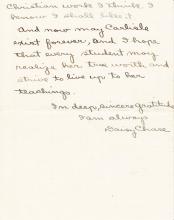 Christian work I think. I
know I shall like it.
And now may Carlisle
exist forever, and I hope
that every student may
realize her true worth and
strive to live up to her
teachings.
In deep, sincere gratitude
I am always
Daisy Chase